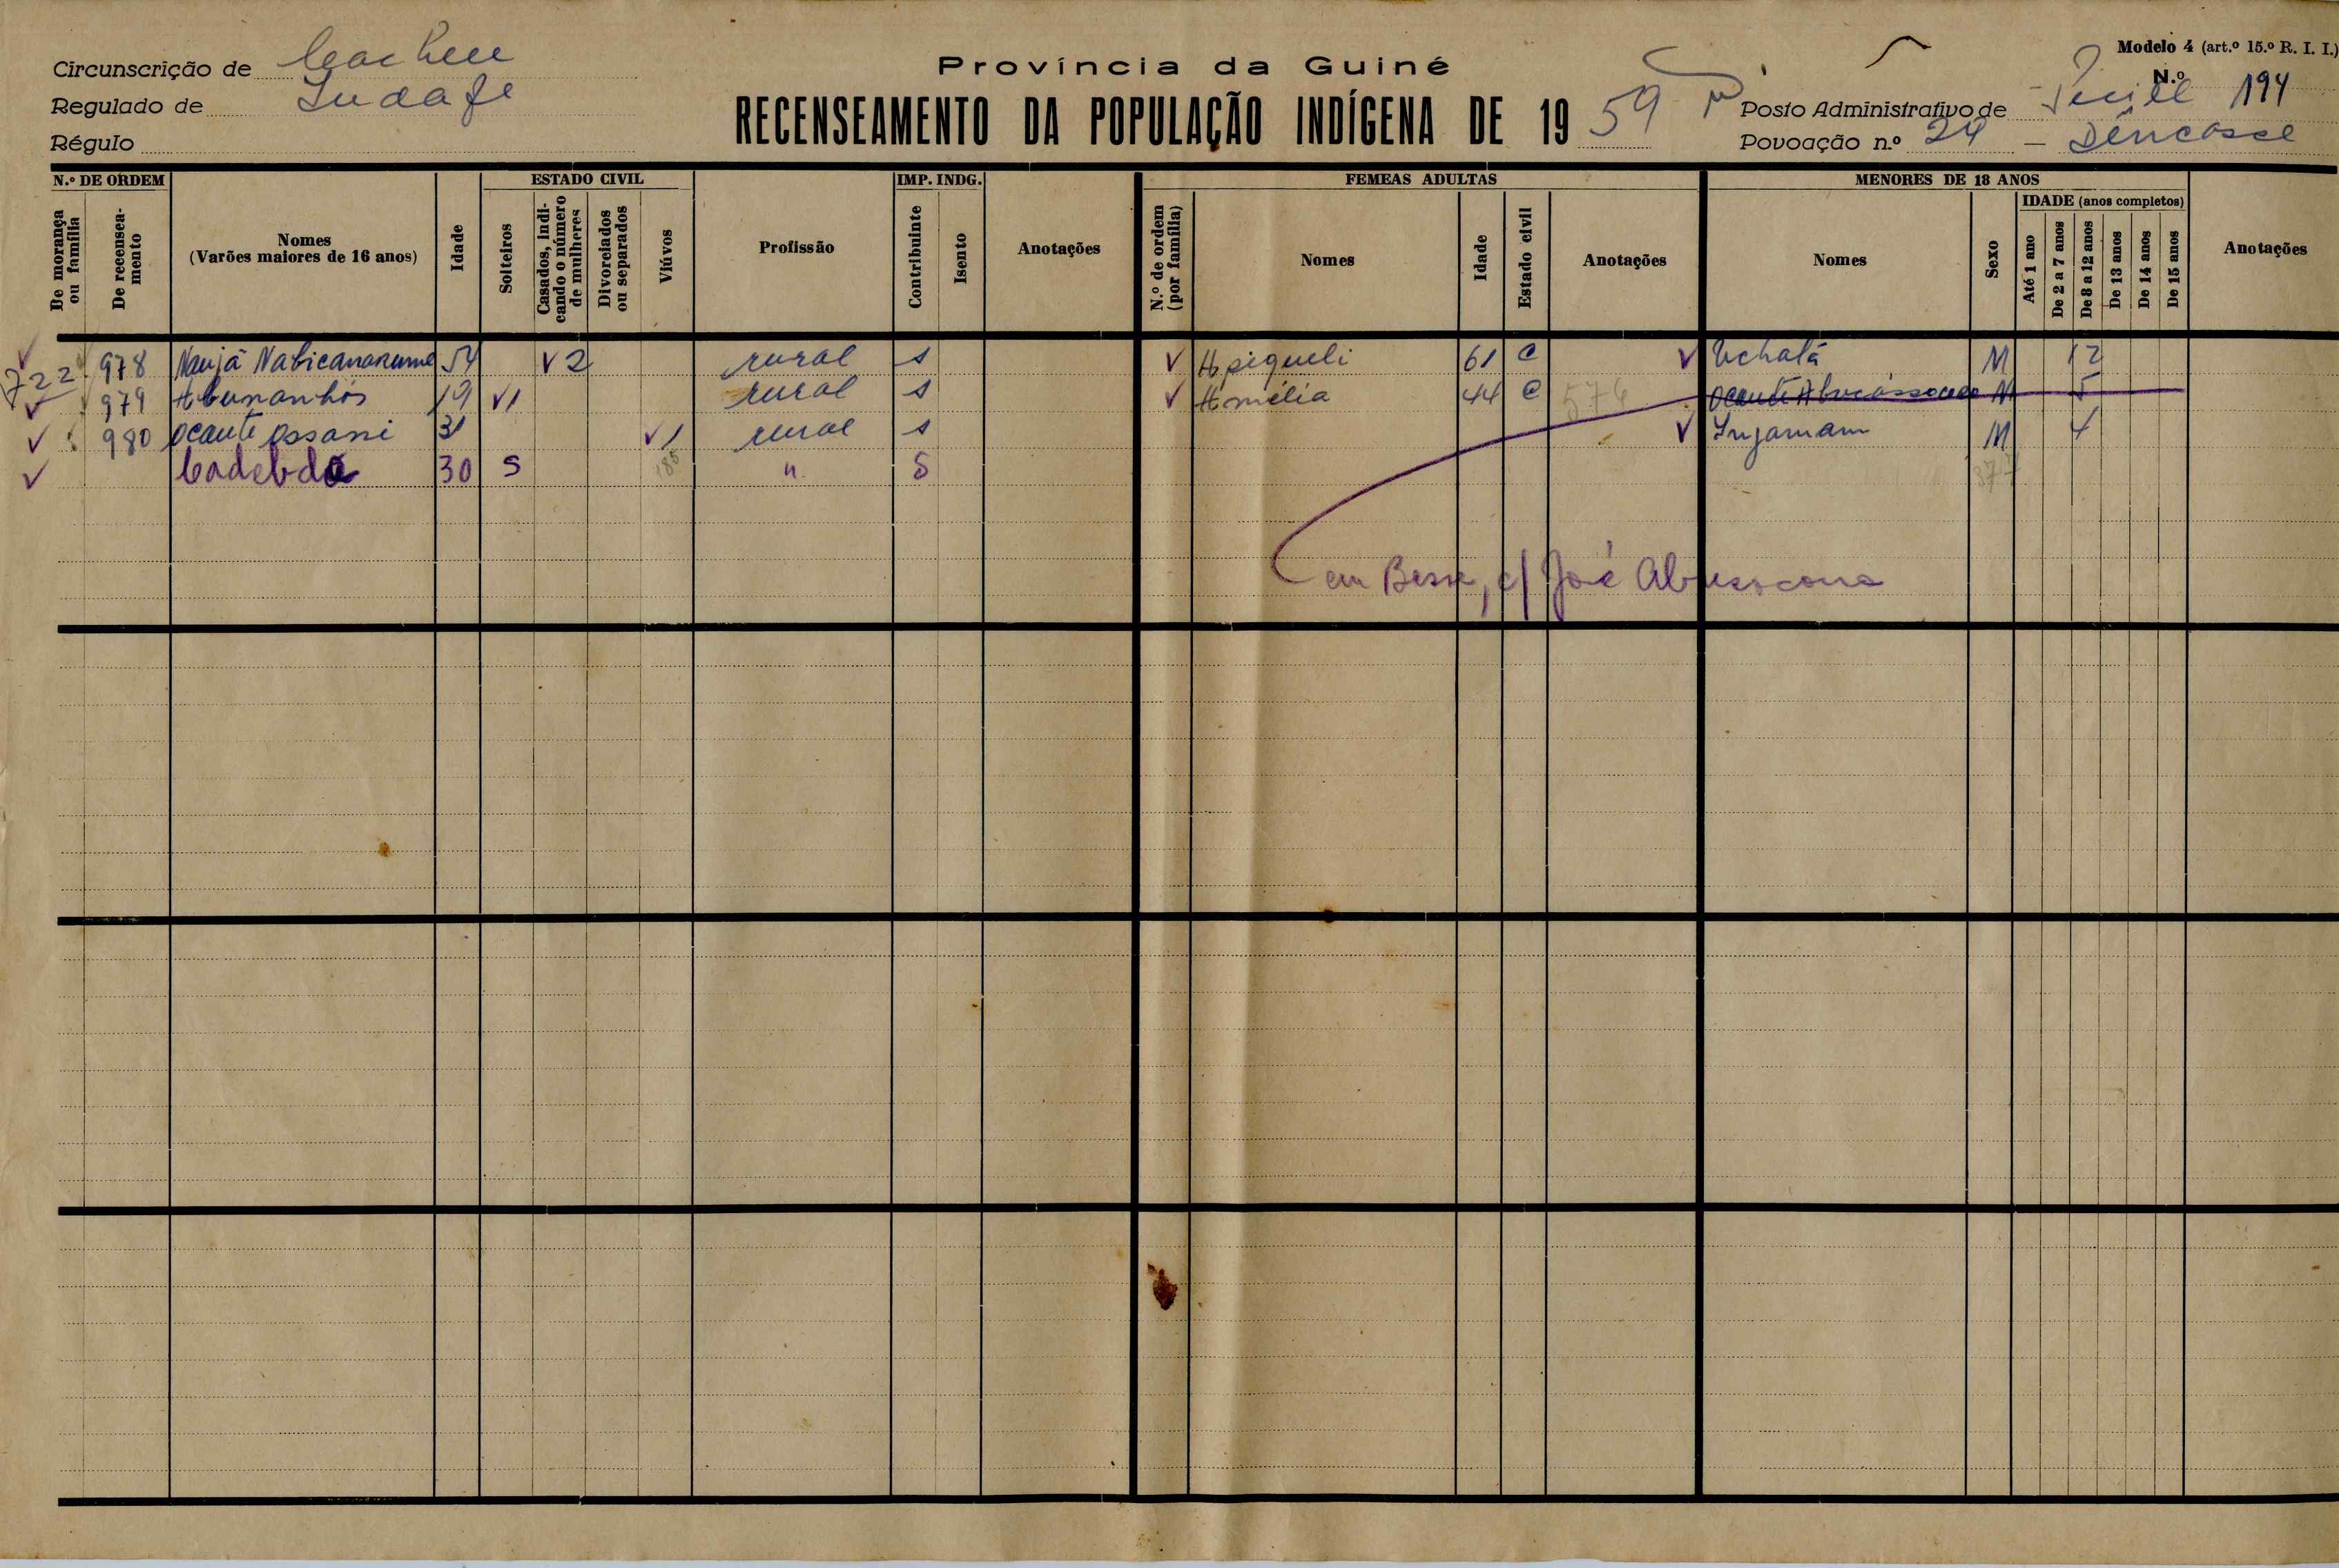 Circunscrição de Cacheu
Regulado de
Régulo
Província da Guiné
RECENSEAMENTO DA POPULAÇÃO INDÍGENA DE 19 59
Modelo 4 (art.º 15.º R. I. I.)
N.º 194
Posto Administrativo de
Povoação n.º 24 —
N.º DE ORDEM
De morança ou família
De recenseamento
Nomes
(Varões maiores de 16 anos)
Idade
ESTADO CIVIL
Solteiros
Casados, indicando o número de mulheres
Divorciados ou separados
Viúvos
Profissão
IMP. INDG.
Contribuinte
Isento
Anotações
FEMEAS ADULTAS
N.º de ordem (por família)
Nomes
Idade
Estado civil
Anotações
MENORES DE 18 ANOS
Nomes
Sexo
IDADE (anos completos)
Até 1 ano
De 2 a 7 anos
De 8 a 12 anos
De 13 anos
De 14 anos
De 15 anos
Anotações
722 978 54 2 rural s 61 C Uchalá M 12
979 19 1 rural s Amélia 44 C 574 Ocante M 5
980 Ocante Ossani 31 1 rural s M 4
30 S " S 377
em Besse, c/ José